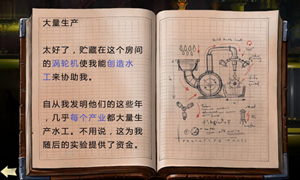 大量生产
太好了，贮藏在这个房间
的涡轮机使我能创造水
工来协助我。
自从我发明他们的这些年
，几乎每个产业都大量生
产水工。不用说，这为我
随后的实验提供了资金。